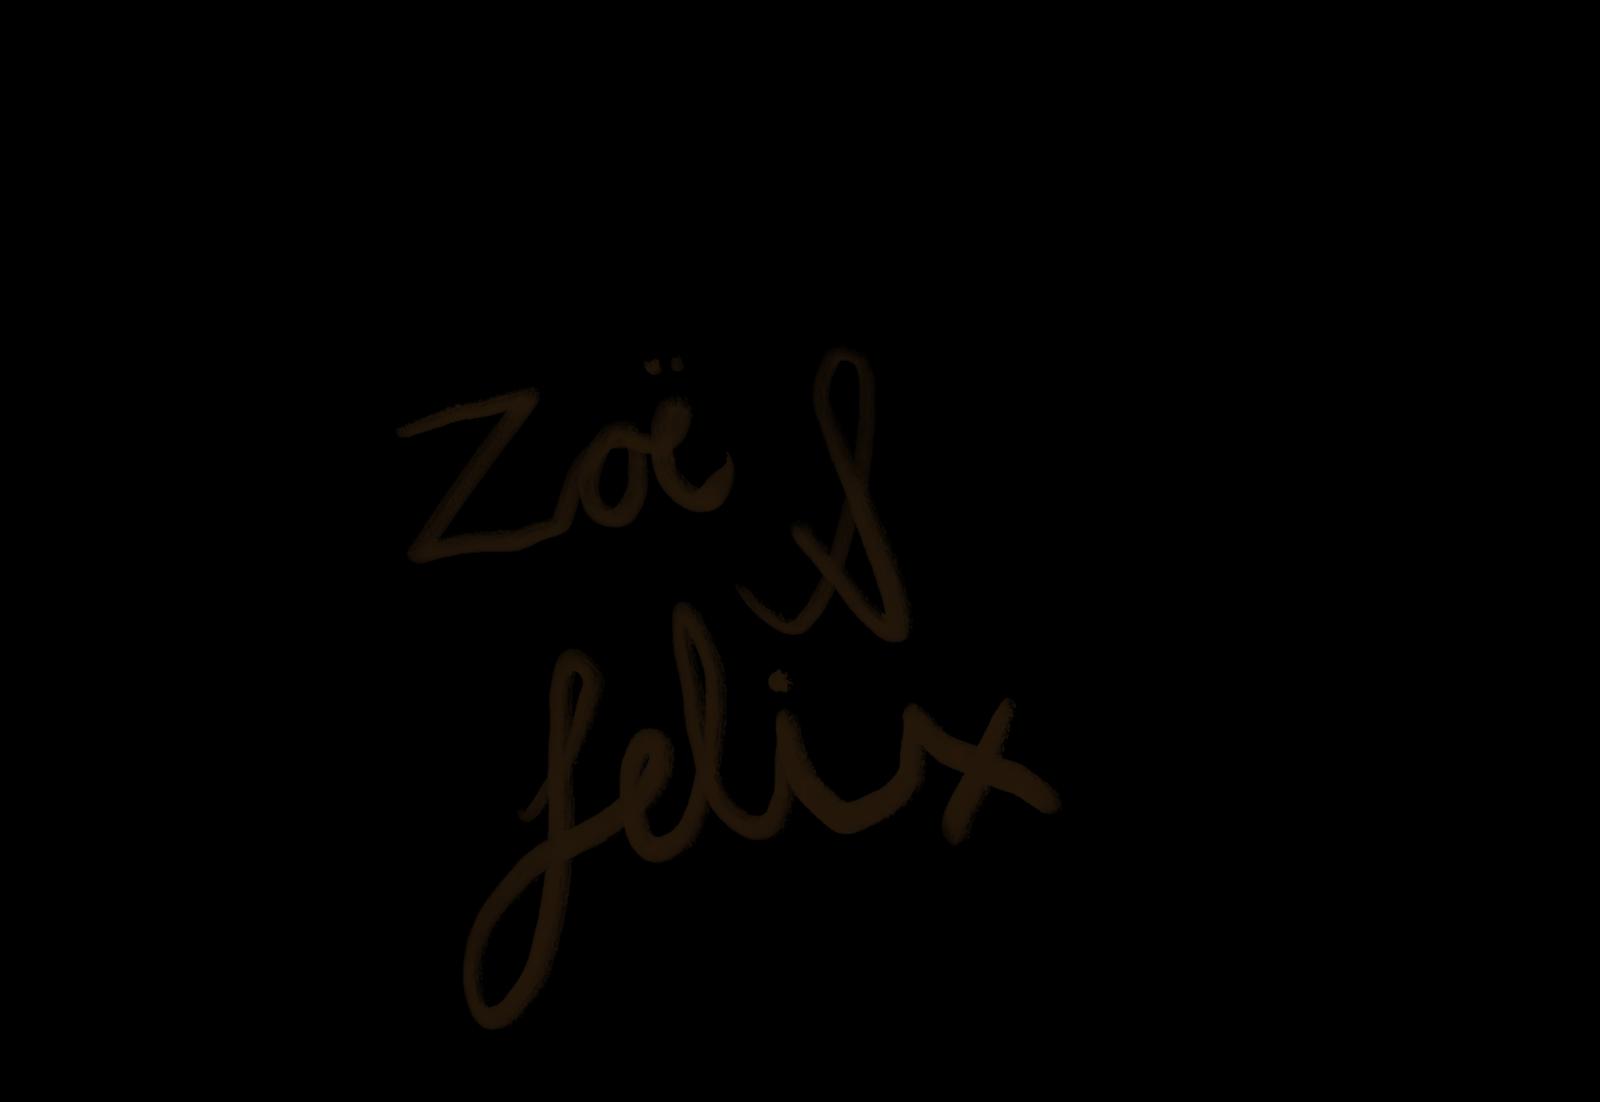 Zoë
&
felix